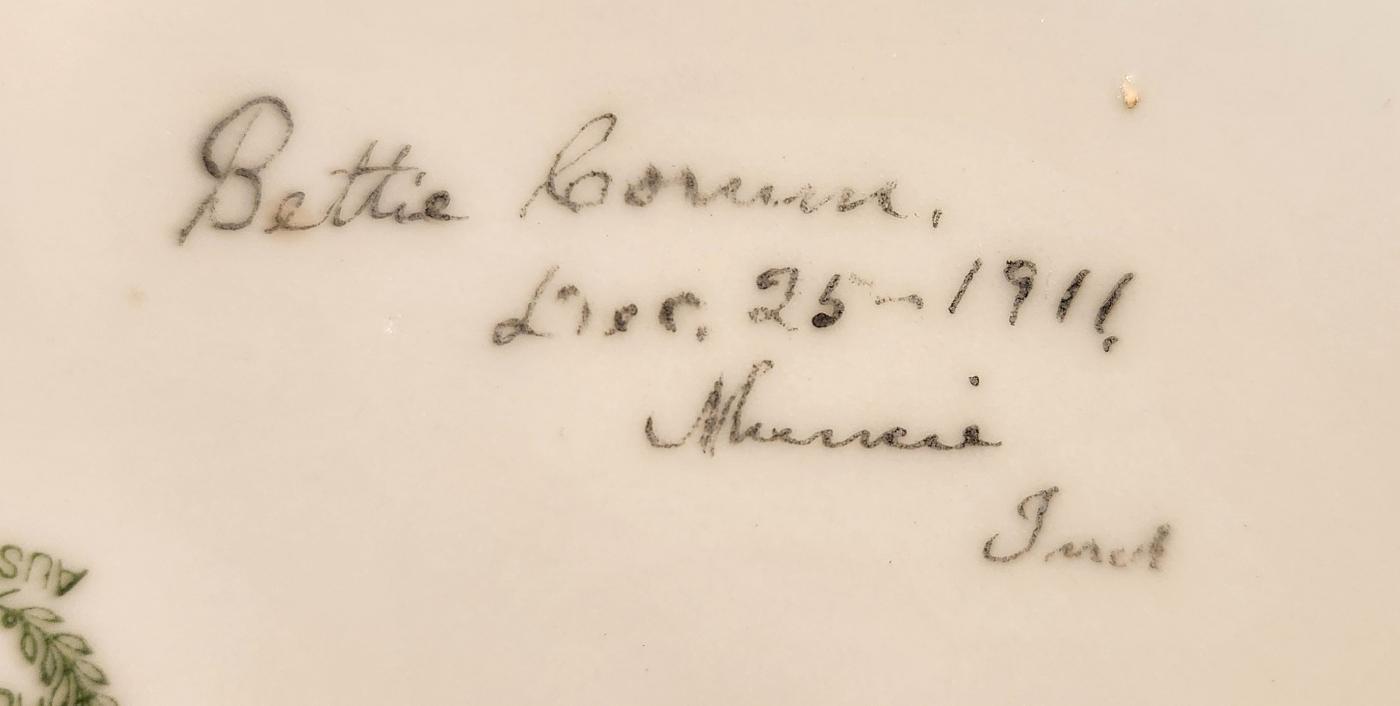 Bettie Corum,
Dec. 25-1911
Muncie
Ind
AUS